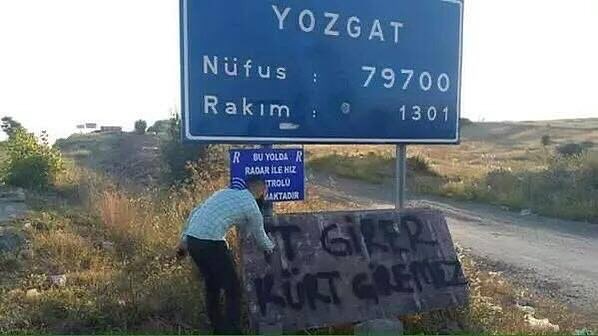 YOZGAT
Nüfus : 79700
Rakım : 1301
R R
BU YOLDA
RADAR İLE HIZ
TROLÜ
MAKTADIR
İT GİRER
KÜRT GİREMEZ